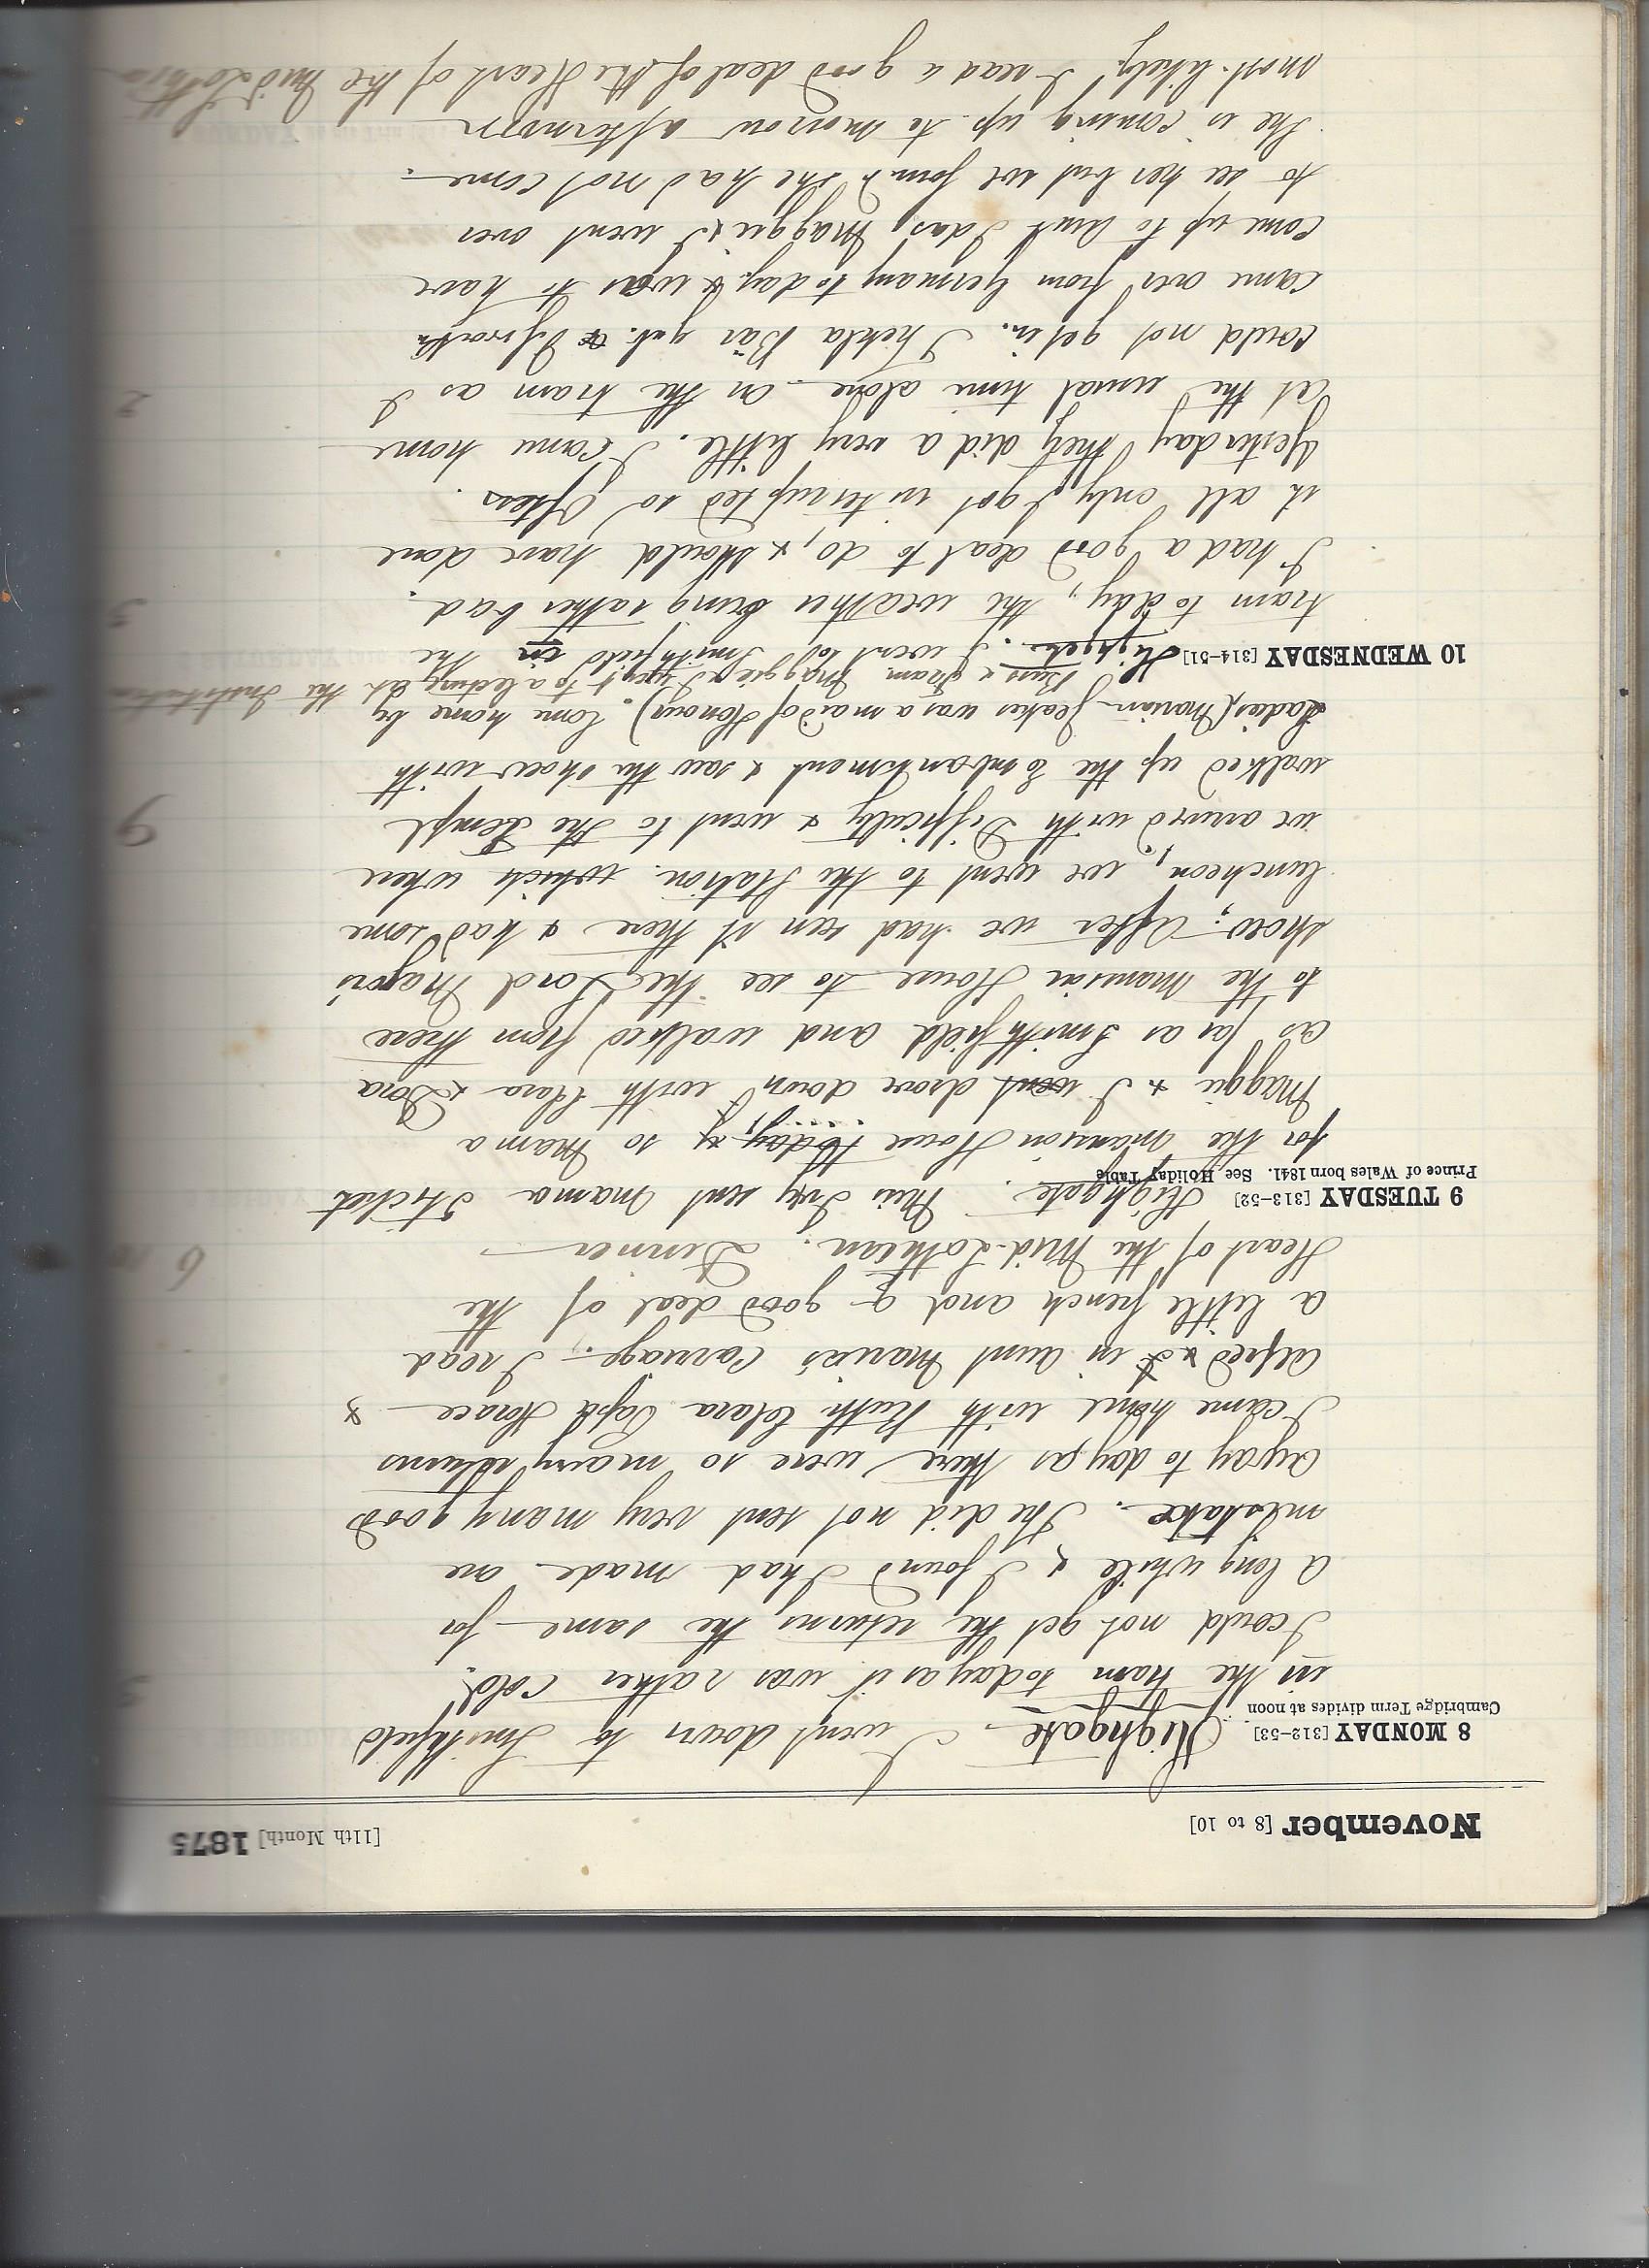 November [8 to 10] [11th Month] 1875
8 MONDAY [312-53] Highgate. I went down to Smithfield
Cambridge Term divides at noon
in the tram today as it was rather cold.
I could not get the returns the same for
a long while & I found I had made one
mistake. She did not sent very many good
away to day as there were so many returns
I came home with Ruth Clara Horace &
Alfred & I in Aunt Maria's Carriage. I read
a little french and a good deal of the
Heart of the Mid-Lothian. Dinner
9 TUESDAY [313-52] Highgate. Miss Ivy sent Mama tickets
Prince of Wales born 1841. See Holiday Table
for the Mansion House today, & so Mama
Maggie & I went drove down with Clara & Dora
as far as Smithfield and walked from there
to the Mansion House to see the Lord Mayor's
show: After we had seen it there & had some
luncheon, we went to the Station which where
we arrived with Difficulty & went to the Temple
walked up the Embankment & saw the show with
Ladies (Marian Jeakes was a maid of Honour). Come home by
Buss & Tram Maggie & I went to a lecture at the Institution
10 WEDNESDAY [314-51] Higgate. I went to Smithfield in the
tram to day, the weather being rather bad.
I had a good deal to do, & should have done
it all only I got interrupted so often.
Yesterday they did a very little. I came home
at the usual time alone on the tram as I
could not get in. Thekla Bär
came over from Germany to day & was to have
come up to Aunt Idas, Maggie & I went over
to see her but we found she had not come.
She is coming up to morrow afternoon
most likely. I read a good deal of the Heart of the Mid Lothian